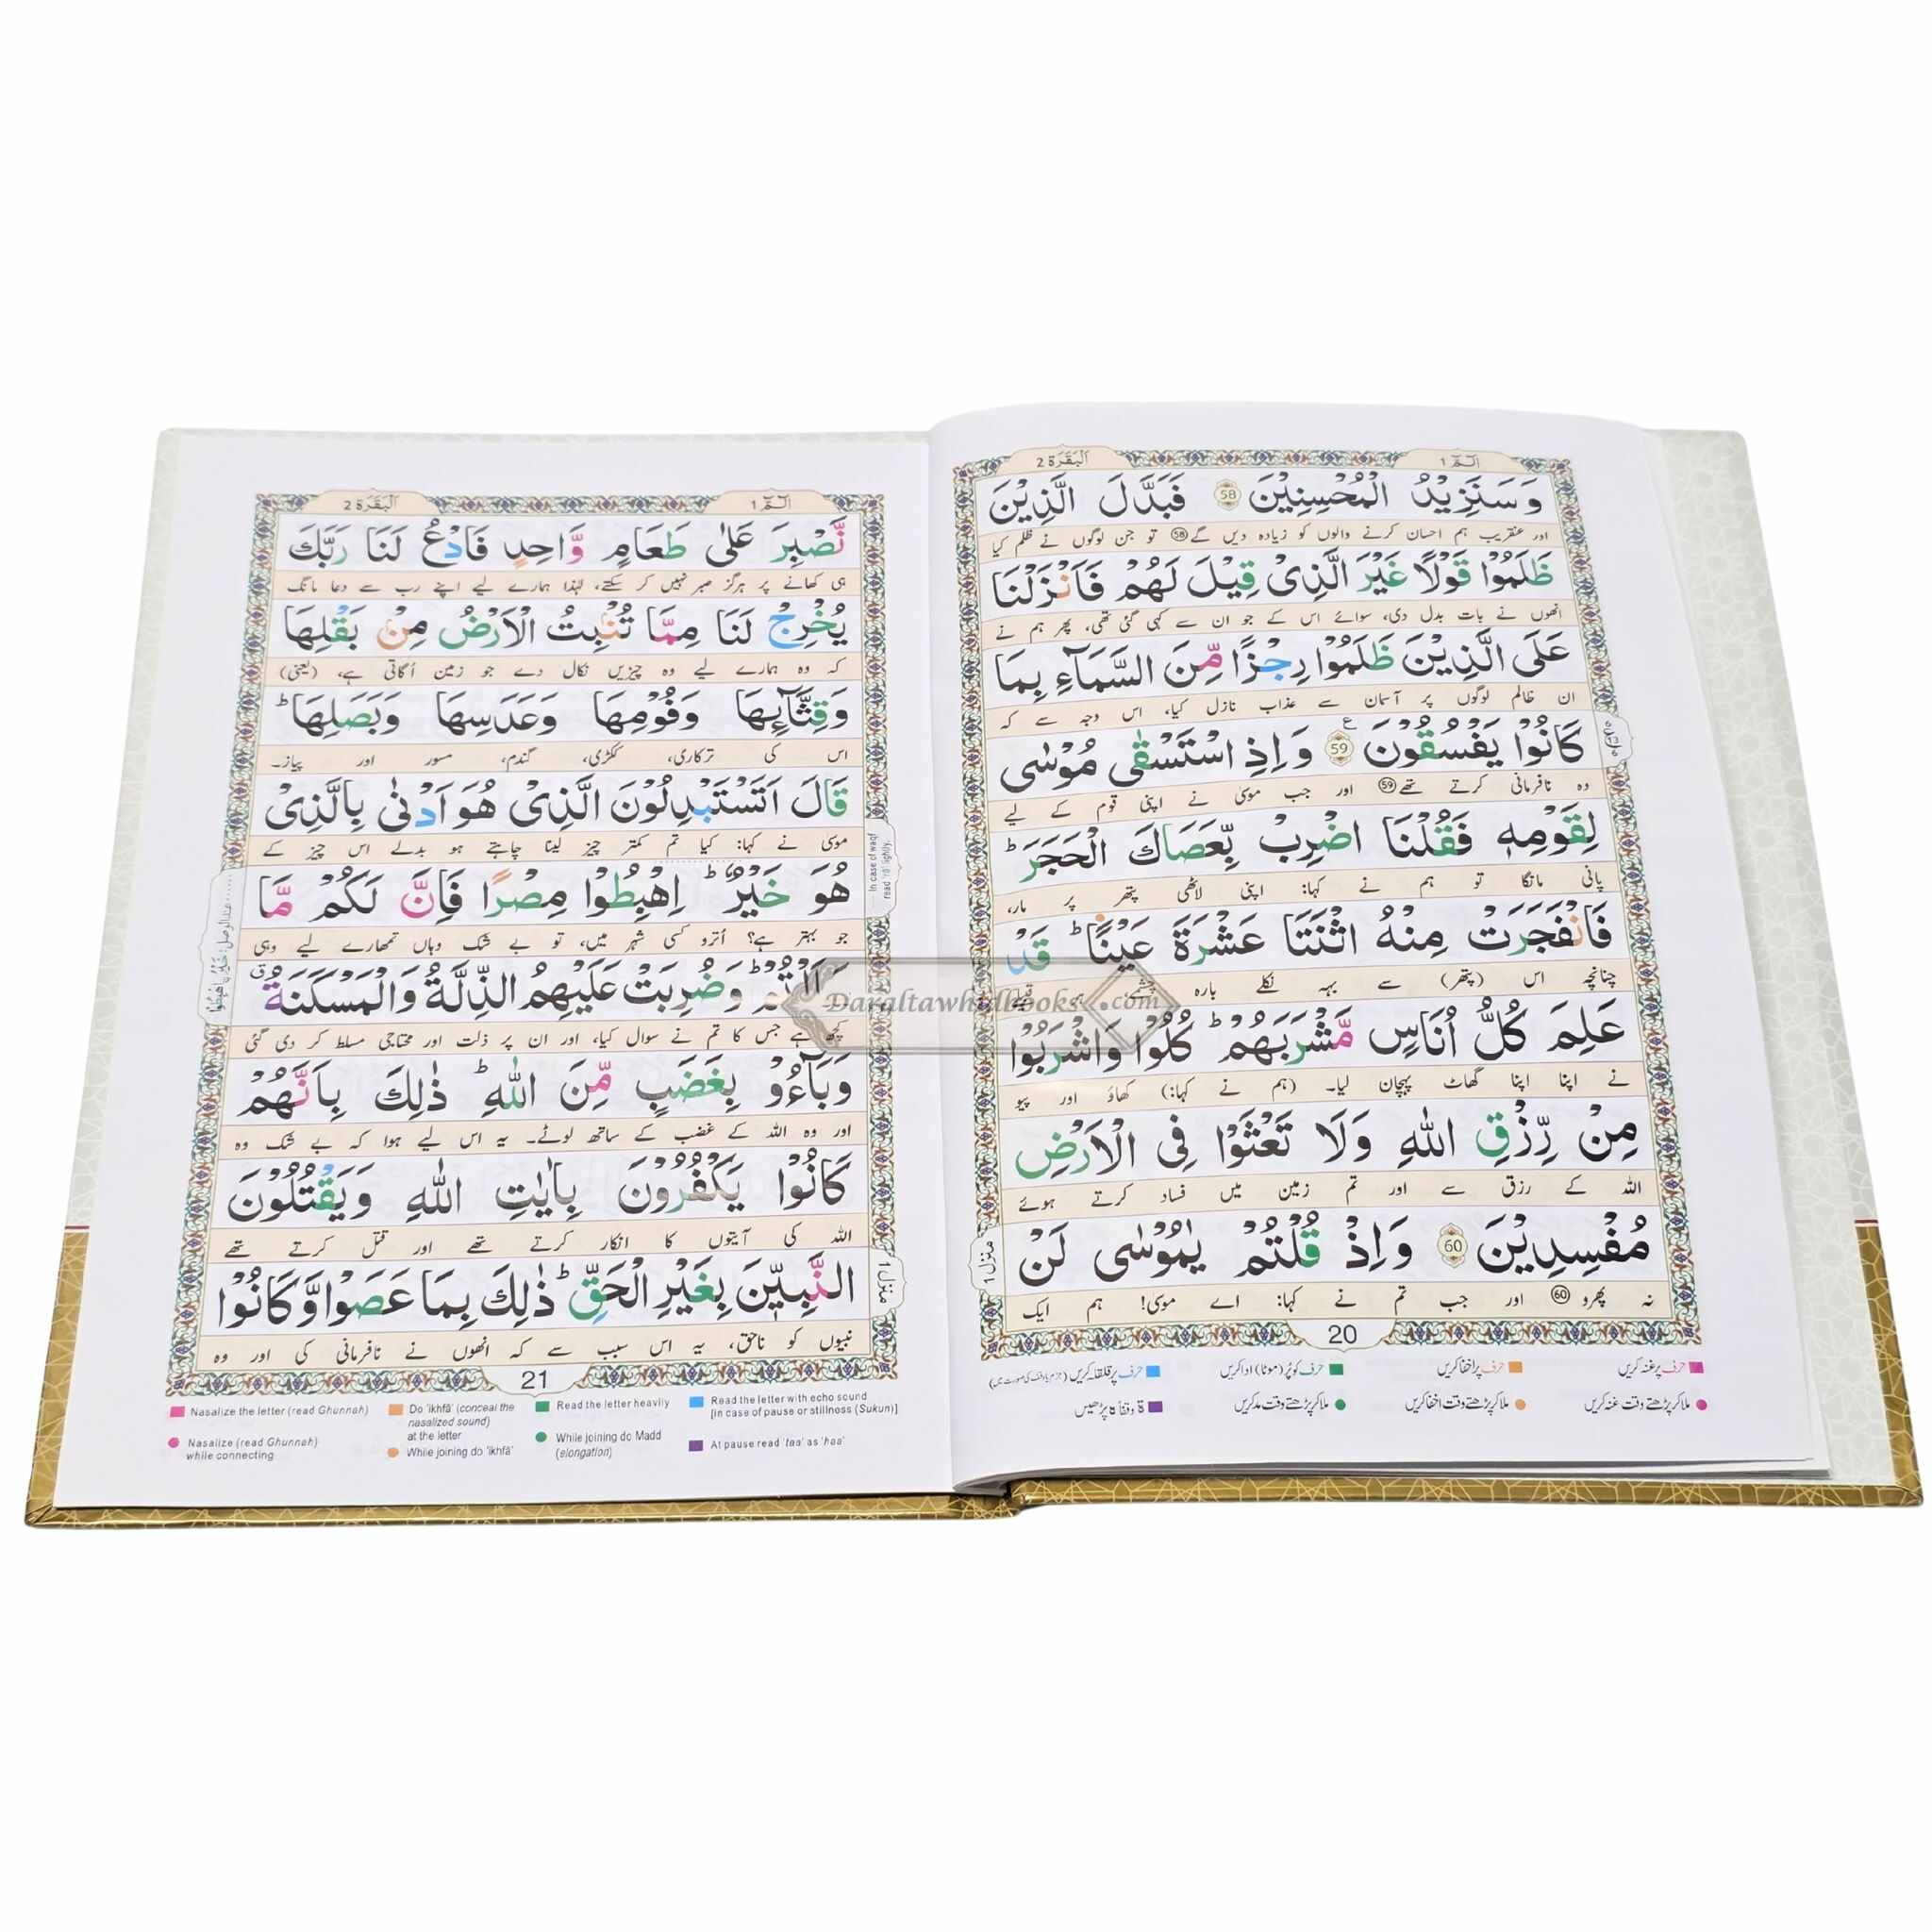 الٓـمّٓ 1
اَلْبَقَرَة 2
وَسَنَزِيْدُ الْمُحْسِنِيْنَ 58 فَبَدَّلَ الَّذِيْنَ
اور عنقریب ہم احسان کرنے والوں کو زیادہ دیں گے 58 تو جن لوگوں نے ظلم کیا
ظَلَمُوْا قَوْلًا غَيْرَ الَّذِيْ قِيْلَ لَهُمْ فَاَنْزَلْنَا
انھوں نے بات بدل دی، سوائے اس کے جو ان سے کہی گئی تھی، پھر ہم نے
عَلَى الَّذِيْنَ ظَلَمُوْا رِجْزًا مِّنَ السَّمَآءِ بِمَا
ان ظالم لوگوں پر آسمان سے عذاب نازل کیا، اس وجہ سے کہ
كَانُوْا يَفْسُقُوْنَ 59 ع وَاِذِ اسْتَسْقٰى مُوْسٰى
وہ نافرمانی کرتے تھے 59 اور جب موسٰی نے اپنی قوم کے لیے
لِقَوْمِهٖ فَقُلْنَا اضْرِبْ بِّعَصَاكَ الْحَجَرَ ؕ
پانی مانگا تو ہم نے کہا: اپنی لاٹھی پتھر پر مار،
فَانْفَجَرَتْ مِنْهُ اثْنَتَا عَشْرَةَ عَيْنًا ؕ قَدْ
چنانچہ اس (پتھر) سے بہہ نکلے بارہ چشمے،
عَلِمَ كُلُّ اُنَاسٍ مَّشْرَبَهُمْ ؕ كُلُوْا وَاشْرَبُوْا
نے اپنا اپنا گھاٹ پہچان لیا۔ (ہم نے کہا:) کھاؤ اور پیو
مِنْ رِّزْقِ اللّٰهِ وَلَا تَعْثَوْا فِى الْاَرْضِ
اللہ کے رزق سے اور تم زمین میں فساد کرتے ہوئے
مُفْسِدِيْنَ 60 وَاِذْ قُلْتُمْ يٰمُوْسٰى لَنْ
نہ پھرو 60 اور جب تم نے کہا: اے موسٰی! ہم ایک
منزل 1
20
حرف پر غنہ کریں
حرف پر اخفا کریں
حرف کو پُر (موٹا) ادا کریں
حرف پر قلقلہ کریں
ملا کر پڑھتے وقت غنہ کریں
ملا کر پڑھتے وقت اخفا کریں
ملا کر پڑھتے وقت مد کریں
ة وقفاً ہ پڑھیں
الٓـمّٓ 1
اَلْبَقَرَة 2
نَّصْبِرَ عَلٰى طَعَامٍ وَّاحِدٍ فَادْعُ لَنَا رَبَّكَ
ہی کھانے پر ہرگز صبر نہیں کر سکتے، لہٰذا ہمارے لیے اپنے رب سے دعا مانگ
يُخْرِجْ لَنَا مِمَّا تُنْبِتُ الْاَرْضُ مِنْ بَقْلِهَا
کہ وہ ہمارے لیے وہ چیزیں نکال دے جو زمین اُگاتی ہے، (یعنی)
وَقِثَّآئِهَا وَفُوْمِهَا وَعَدَسِهَا وَبَصَلِهَا ؕ
اس کی ترکاری، ککڑی، گندم، مسور اور پیاز۔
قَالَ اَتَسْتَبْدِلُوْنَ الَّذِيْ هُوَ اَدْنٰى بِالَّذِيْ
موسٰی نے کہا: کیا تم کمتر چیز لینا چاہتے ہو بدلے اس چیز کے
هُوَ خَيْرٌ ؕ اِهْبِطُوْا مِصْرًا فَاِنَّ لَكُمْ مَّا
جو بہتر ہے؟ اُترو کسی شہر میں، تو بے شک وہاں تمھارے لیے وہی
سَاَلْتُمْ ؕ وَضُرِبَتْ عَلَيْهِمُ الذِّلَّةُ وَالْمَسْكَنَةُ ق
کچھ ہے جس کا تم نے سوال کیا، اور ان پر ذلت اور محتاجی مسلط کر دی گئی
وَبَآءُوْ بِغَضَبٍ مِّنَ اللّٰهِ ؕ ذٰلِكَ بِاَنَّهُمْ
اور وہ اللہ کے غضب کے ساتھ لوٹے۔ یہ اس لیے ہوا کہ بے شک وہ
كَانُوْا يَكْفُرُوْنَ بِاٰيٰتِ اللّٰهِ وَيَقْتُلُوْنَ
اللہ کی آیتوں کا انکار کرتے تھے اور قتل کرتے تھے
النَّبِيّٖنَ بِغَيْرِ الْحَقِّ ؕ ذٰلِكَ بِمَا عَصَوْا وَّكَانُوْا
نبیوں کو ناحق، یہ اس سبب سے کہ انھوں نے نافرمانی کی اور وہ
In case of waqf
read 'ra' lightly.
منزل 1
21
Nasalize the letter (read Ghunnah)
Do 'ikhfā' (conceal the nasalized sound) at the letter
Read the letter heavily
Read the letter with echo sound [in case of pause or stillness (Sukun)]
Nasalize (read Ghunnah) while connecting
While joining do 'ikhfā'
While joining do Madd (elongation)
At pause read 'taa' as 'haa'
Daraltawhidbooks.com